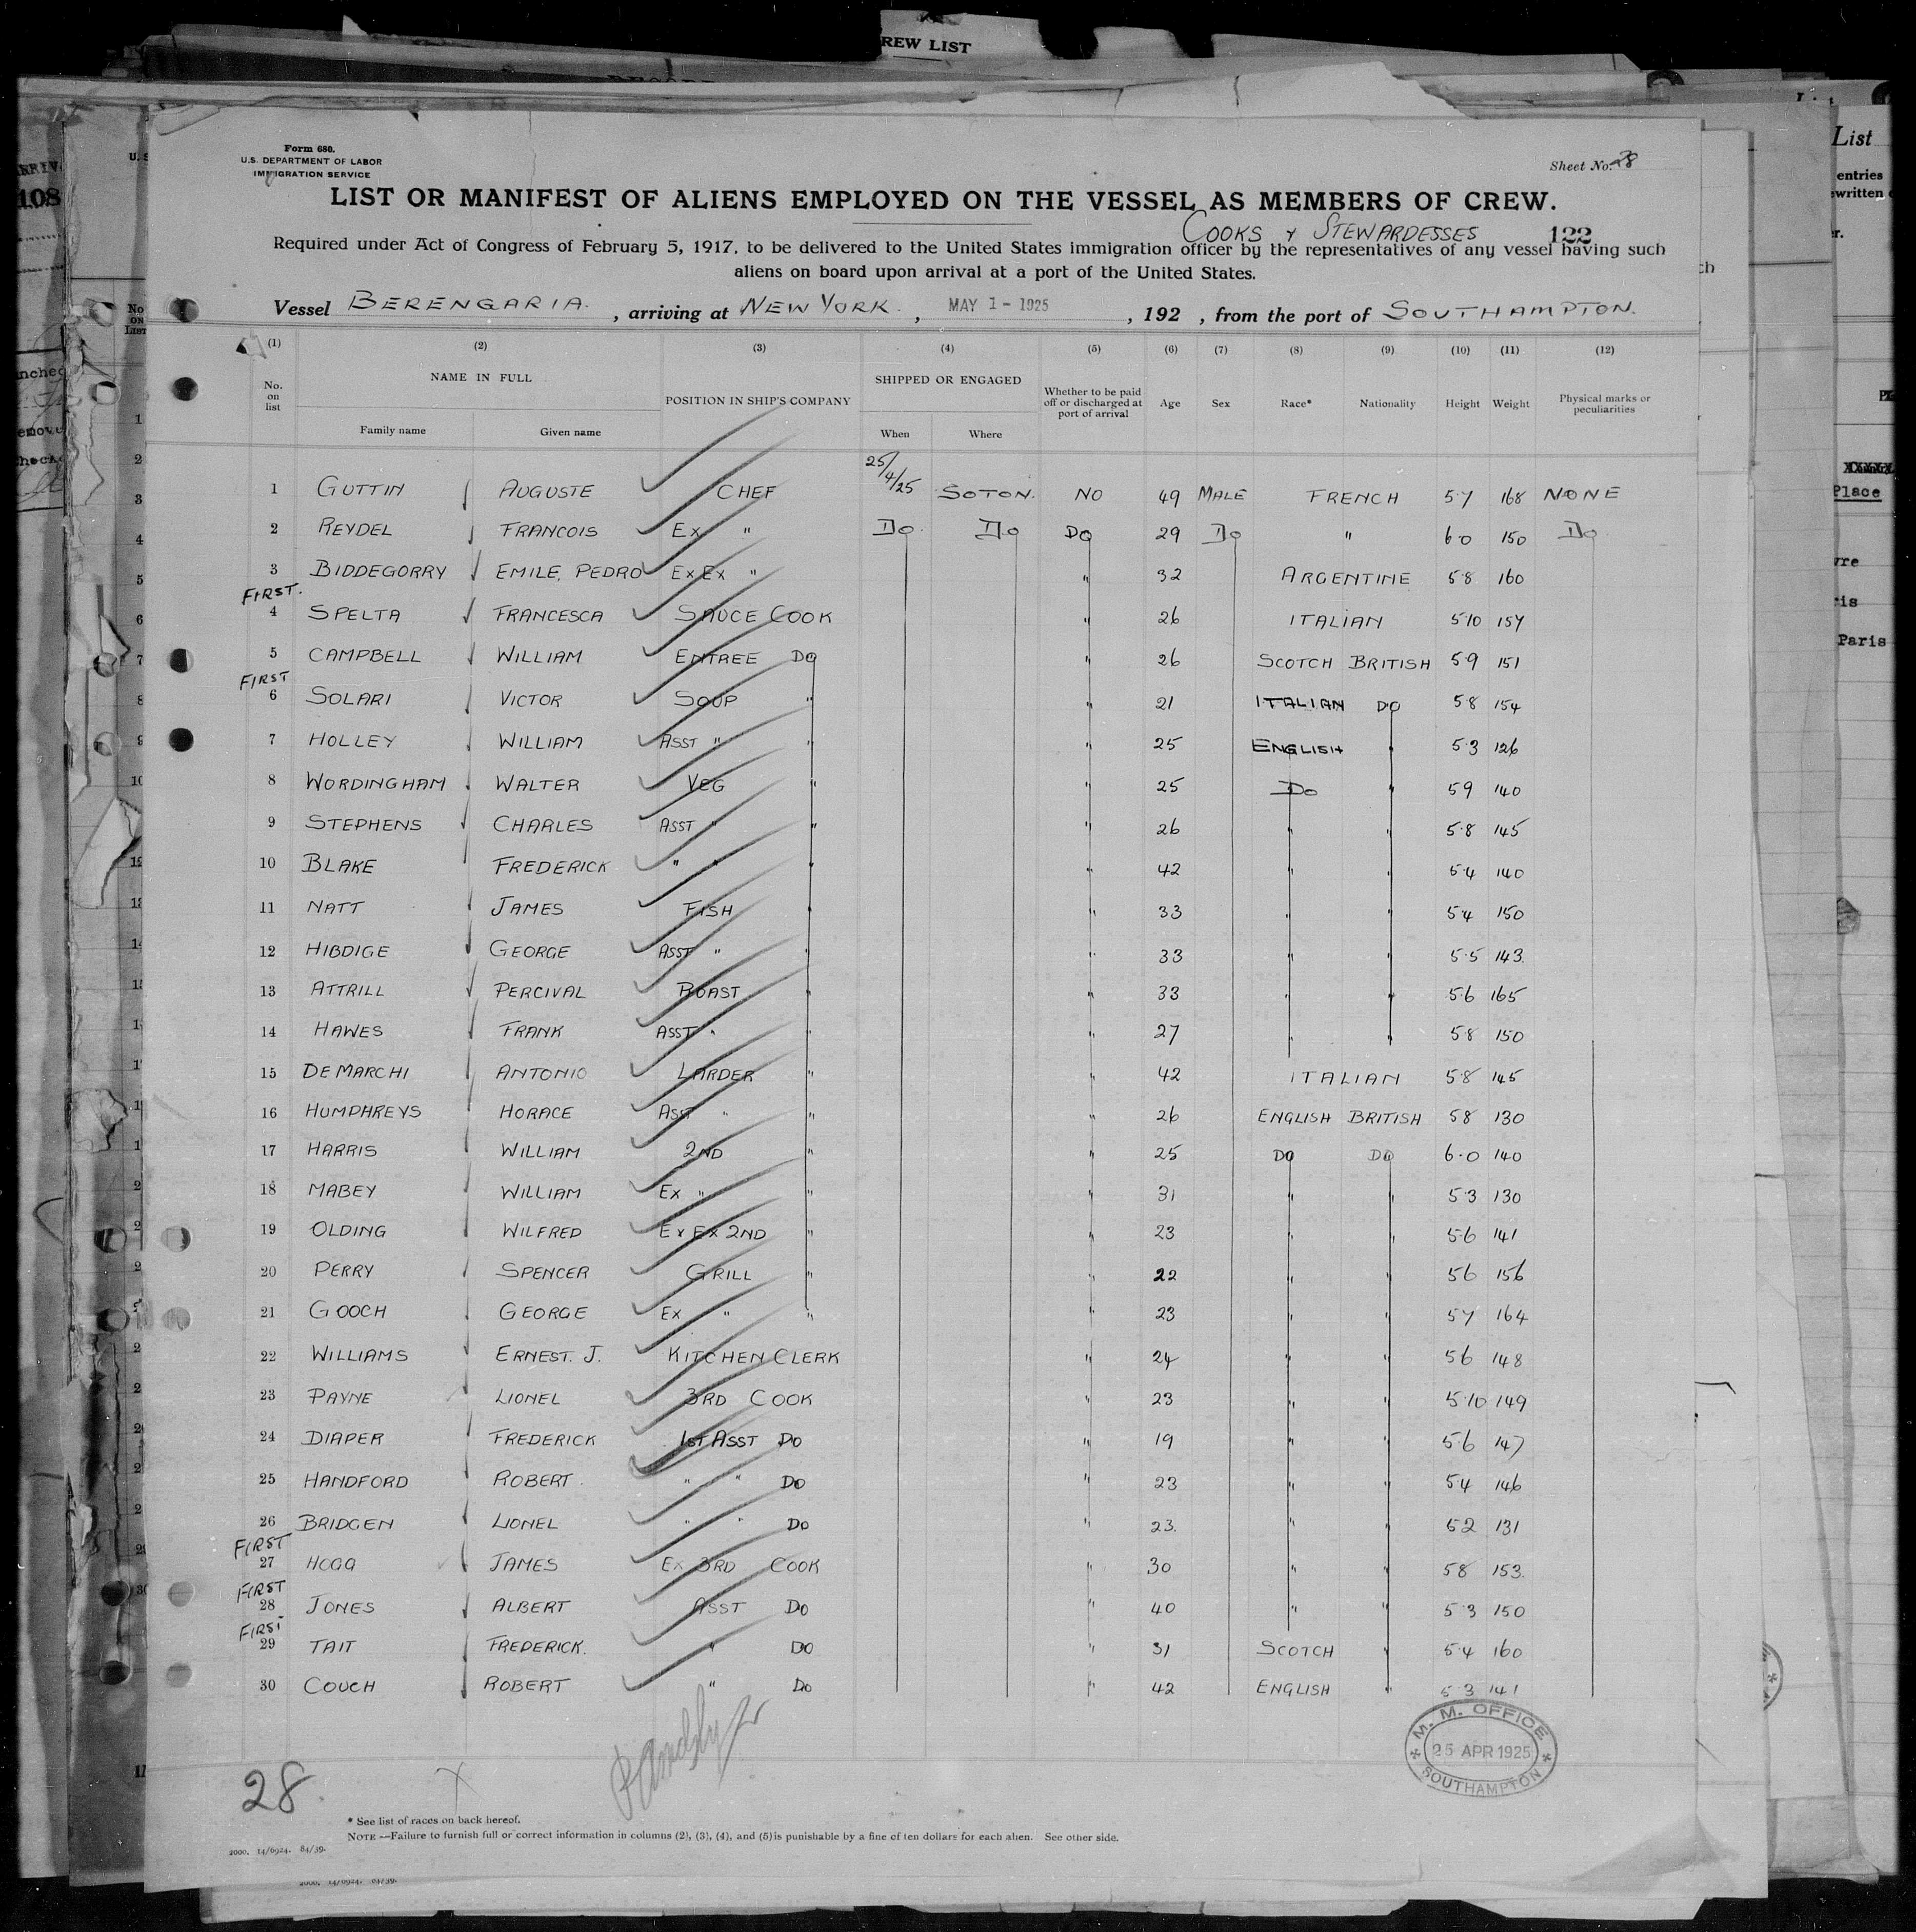 REW LIST
Form 680.
U.S. DEPARTMENT OF LABOR
IMMIGRATION SERVICE
Sheet No. 28
LIST OR MANIFEST OF ALIENS EMPLOYED ON THE VESSEL AS MEMBERS OF CREW.
COOKS & STEWARDESSES 122
Required under Act of Congress of February 5, 1917, to be delivered to the United States immigration officer by the representatives of any vessel having such
aliens on board upon arrival at a port of the United States.
Vessel BERENGARIA. , arriving at NEW YORK. , MAY 1 - 1925 , 192 , from the port of SOUTHAMPTON.
(1) (2) (3) (4) (5) (6) (7) (8) (9) (10) (11) (12)
No. on list NAME IN FULL Family name Given name POSITION IN SHIP'S COMPANY SHIPPED OR ENGAGED When Where Whether to be paid off or discharged at port of arrival Age Sex Race* Nationality Height Weight Physical marks or peculiarities
1 GUTTIN AUGUSTE CHEF 25/4/25 SOTON. NO 49 MALE FRENCH 5·7 168 NONE
2 REYDEL FRANCOIS EX " DO DO DO 29 DO " 6·0 150 DO
3 BIDDEGORRY EMILE, PEDRO EX EX " " 32 ARGENTINE 5·8 160
FIRST.
4 SPELTA FRANCESCA SAUCE COOK " 26 ITALIAN 5·10 157
5 CAMPBELL WILLIAM ENTREE DO " 26 SCOTCH BRITISH 5·9 151
FIRST
6 SOLARI VICTOR SOUP " " 21 ITALIAN DO 5·8 154
7 HOLLEY WILLIAM ASST " " " 25 ENGLISH " 5·3 126
8 WORDINGHAM WALTER VEG " " 25 DO " 5·9 140
9 STEPHENS CHARLES ASST " " " 26 " " 5·8 145
10 BLAKE FREDERICK " " " " 42 " " 5·4 140
11 NATT JAMES FISH " " 33 " " 5·4 150
12 HIBDIGE GEORGE ASST " " " 33 " " 5·5 143
13 ATTRILL PERCIVAL ROAST " " 33 " " 5·6 165
14 HAWES FRANK ASST " " " 27 " " 5·8 150
15 DEMARCHI ANTONIO LARDER " " 42 ITALIAN 5·8 145
16 HUMPHREYS HORACE ASST " " " 26 ENGLISH BRITISH 5·8 130
17 HARRIS WILLIAM 2ND " " 25 DO DO 6·0 140
18 MABEY WILLIAM EX " " " 31 " " 5·3 130
19 OLDING WILFRED EX EX 2ND " " 23 " " 5·6 141
20 PERRY SPENCER GRILL " " 22 " " 5·6 156
21 GOOCH GEORGE EX " " " 23 " " 5·7 164
22 WILLIAMS ERNEST. J. KITCHEN CLERK " 24 " " 5·6 148
23 PAYNE LIONEL 3RD COOK " 23 " " 5·10 149
24 DIAPER FREDERICK 1ST ASST DO " 19 " " 5·6 147
25 HANDFORD ROBERT. " " DO " 23 " " 5·4 146
26 BRIDGEN LIONEL " " DO " 23. " " 5·2 131
FIRST
27 HOGG JAMES EX 3RD COOK " 30 " " 5·8 153.
FIRST
28 JONES ALBERT ASST DO " 40 " " 5·3 150
FIRST
29 TAIT FREDERICK. " DO " 31 SCOTCH " 5·4 160
30 COUCH ROBERT " DO " 42 ENGLISH " 5·3 141
M. M. OFFICE
25 APR 1925
SOUTHAMPTON
28.
* See list of races on back hereof.
NOTE —Failure to furnish full or correct information in columns (2), (3), (4), and (5) is punishable by a fine of ten dollars for each alien. See other side.
2000. 14/6924. 84/39.
2000. 14/6924. 84/39.
108
List
entries
Place
Paris